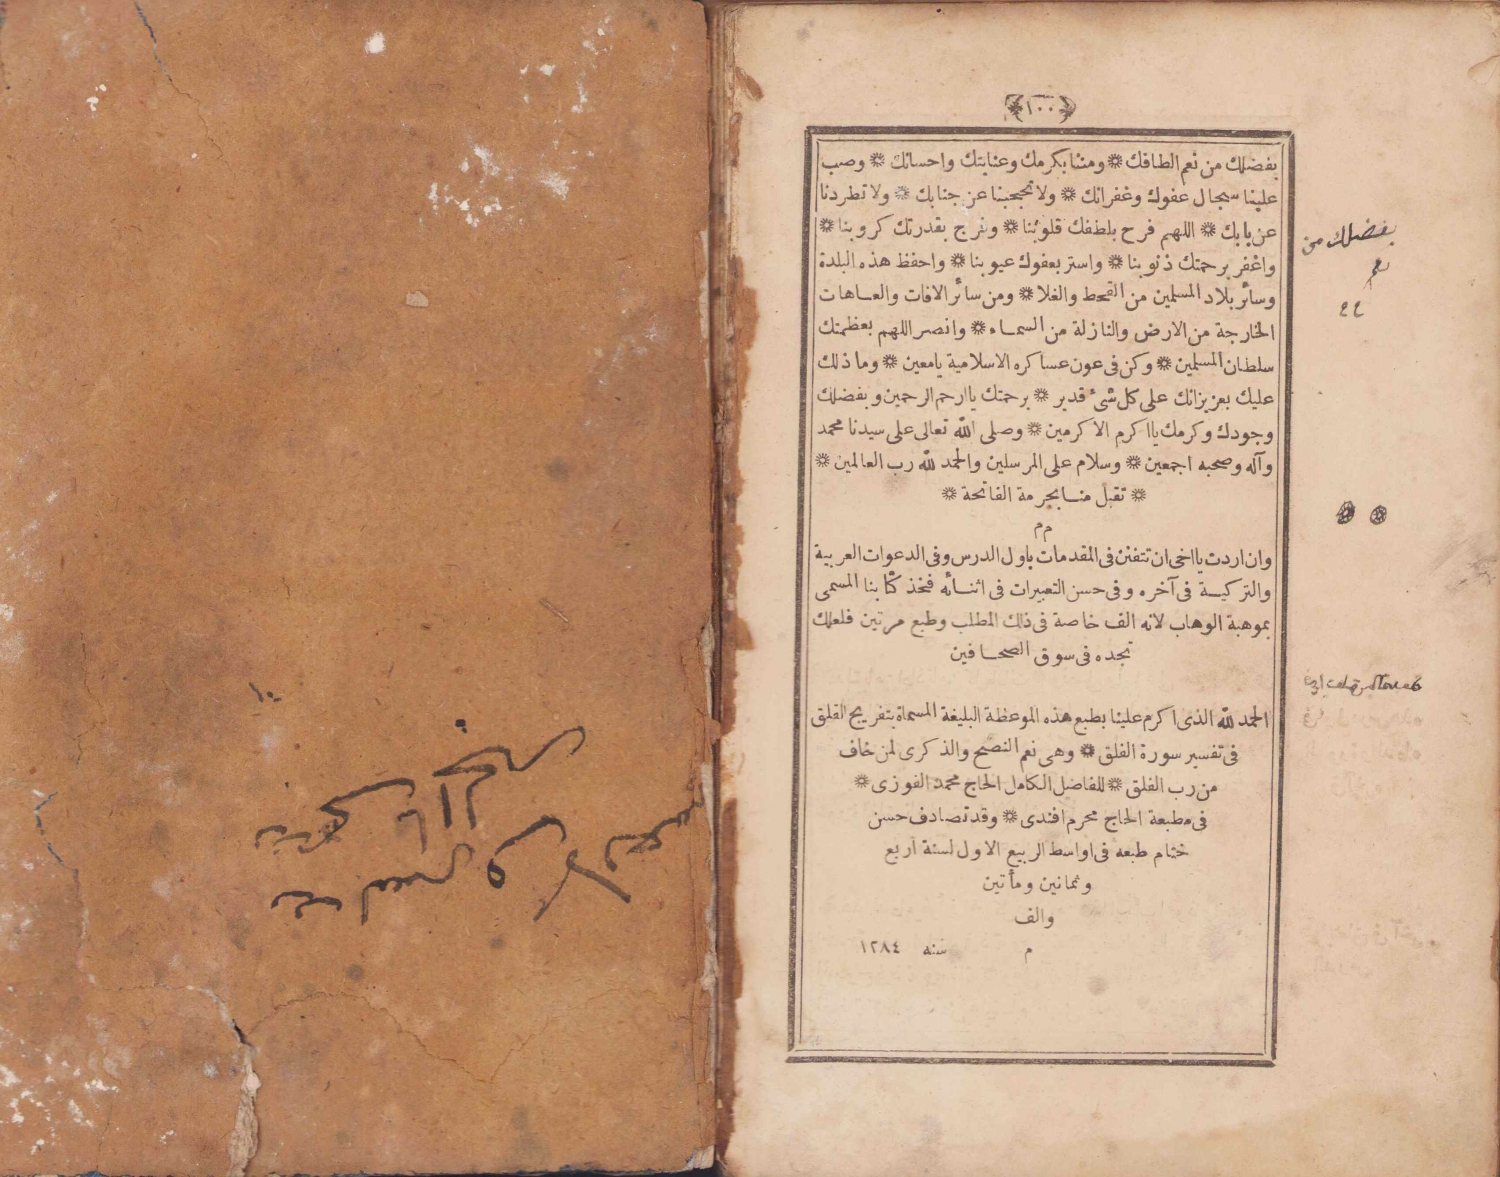 ١٠٠
بفضلك من نعم الطافك ❋ ومننا بكرمك وعنايتك واحسانك ❋ وصب
علينا سجال عفوك وغفرانك ❋ ولا تحجبنا عن جنابك ❋ ولا تطردنا
عن بابك ❋ اللهم فرح بلطفك قلوبنا ❋ وفرج بقدرتك كروبنا ❋
واغفر برحمتك ذنوبنا ❋ واستر بعفوك عيوبنا ❋ واحفظ هذه البلدة
وسائر بلاد المسلمين من القحط والغلا ❋ ومن سائر الافات والعاهات
الخارجة من الارض والنازلة من السماء ❋ وانصر اللهم بعظمتك
سلطان المسلمين ❋ وكن فى عون عساكره الاسلامية يامعين ❋ وما ذلك
عليك بعزيز انك على كل شئ قدير ❋ برحمتك ياارحم الرحمين وبفضلك
وجودك وكرمك يااكرم الاكرمين ❋ وصلى الله تعالى على سيدنا محمد
وآله وصحبه اجمعين ❋ وسلام على المرسلين والحمد لله رب العالمين ❋
❋ تقبل منا بحرمة الفاتحة ❋
م م
وان اردت يااخى ان تتفنن فى المقدمات باول الدرس وفى الدعوات العربية
والتركية فى آخره وفى حسن التعبيرات فى اثنائه فخذ كتابنا المسمى
بموهبة الوهاب لانه الف خاصة فى ذلك المطلب وطبع مرتين فلعلك
تجده فى سوق الصحافين
الحمد لله الذى اكرم علينا بطبع هذه الموعظة البليغة المسماة بتفريج القلق
فى تفسير سورة الفلق ❋ وهى نعم النصح والذكرى لمن خاف
من رب الفلق ❋ للفاضل الكامل الحاج محمد الفوزى ❋
فى مطبعة الحاج محرم افندى ❋ وقد تصادف حسن
ختام طبعه فى اواسط الربيع الاول لسنة اربع
وثمانين ومأتين
والف
م سنه ١٢٨٤
بفضلك من
نعم